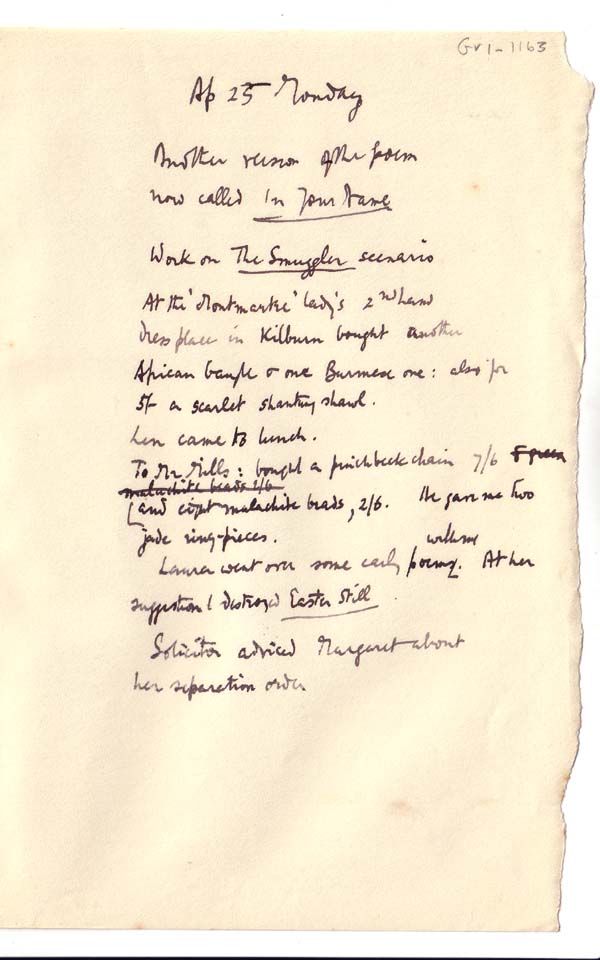 Gv1-1163
Ap 25 Monday
Another version of the poem
now called In Your Name
Work on The Smuggler scenario
At the 'Montmartre' lady's 2nd hand
dress place in Kilburn bought another
African bangle & one Burmese one: also for
5/- a scarlet shantung shawl.
Len came to lunch.
To Mr Mills: bought a pinchbeck chain 7/6 5 green
malachite beads 2/6
[and eight malachite beads, 2/6. He gave me two
jade ring-pieces.
with me
Laura went over some early poems. At her
suggestion I destroyed Easter Still.
Solicitor advised Margaret about
her separation order